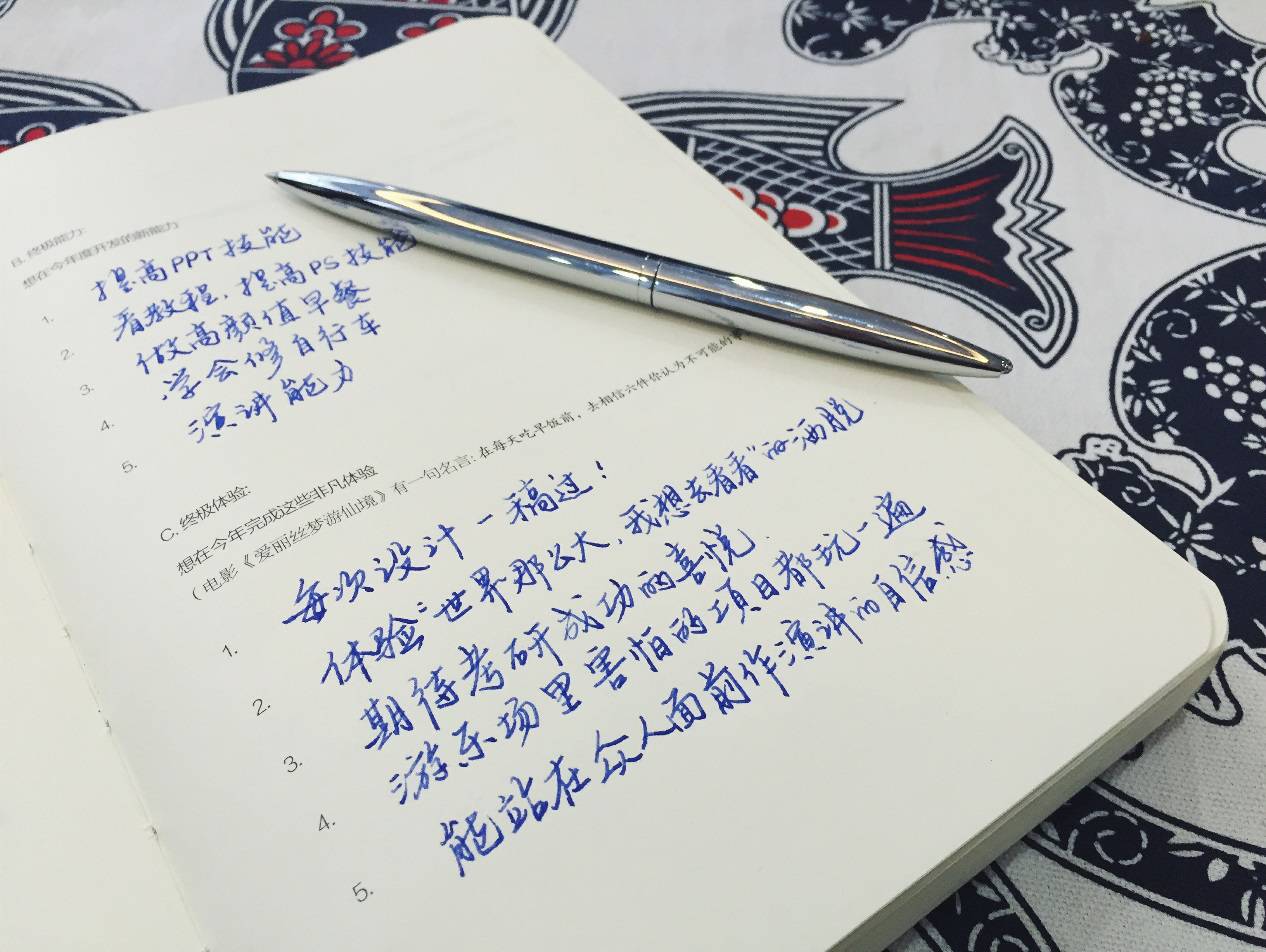 B. 终极能力:
想在今年度开发的新能力
1. 提高PPT技能
2. 看教程，提高PS技能
3. 做高颜值早餐
4. 学会修自行车
5. 演讲能力
C. 终极体验:
想在今年完成这些非凡体验
（电影《爱丽丝梦游仙境》有一句名言: 在每天吃早饭前，去相信六件你认为不可能的事
1. 每次设计一稿过！
2. 体验“世界那么大，我想去看看”的洒脱
3. 期待考研成功的喜悦.
4. 游乐场里害怕的项目都玩一遍
5. 能站在众人面前作演讲的自信感